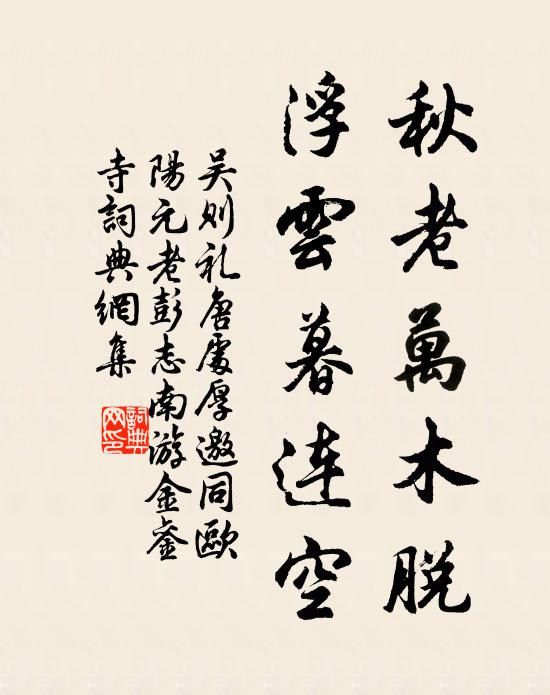 秋老萬木脫
浮雲暮連空
吴则礼唐處厚邀同歐
陽元老彭志南游金銮
寺詞典網集
詞典网印